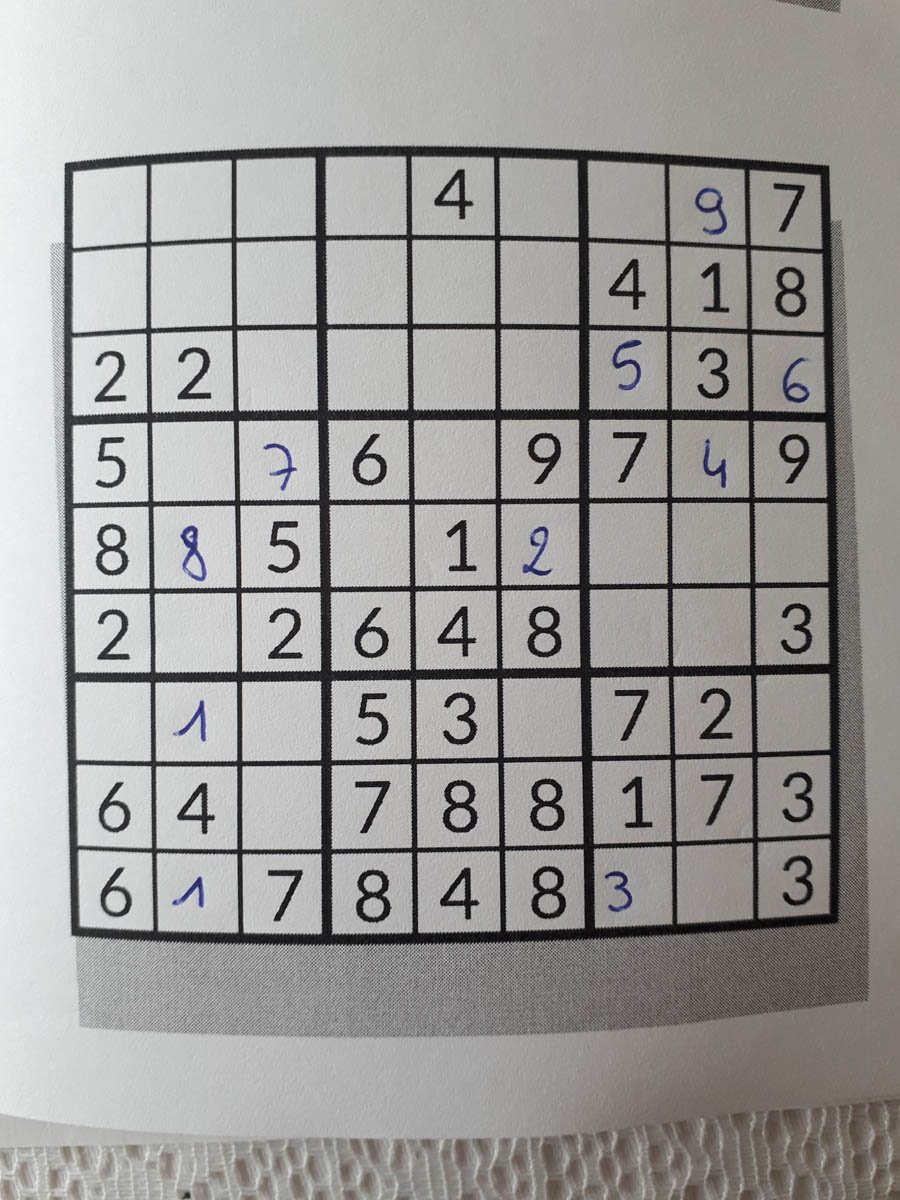 4 9 7
4 1 8
2 2 5 3 6
5 7 6 9 7 4 9
8 8 5 1 2
2 2 6 4 8 3
1 5 3 7 2
6 4 7 8 8 1 7 3
6 1 7 8 4 8 3 3